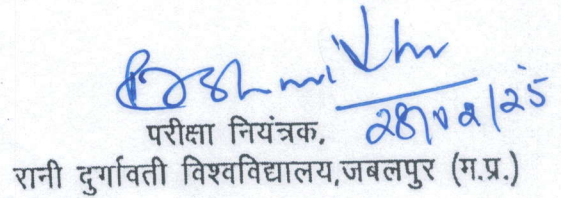 28/02/25
परीक्षा नियंत्रक,
रानी दुर्गावती विश्वविद्यालय,जबलपुर (म.प्र.)